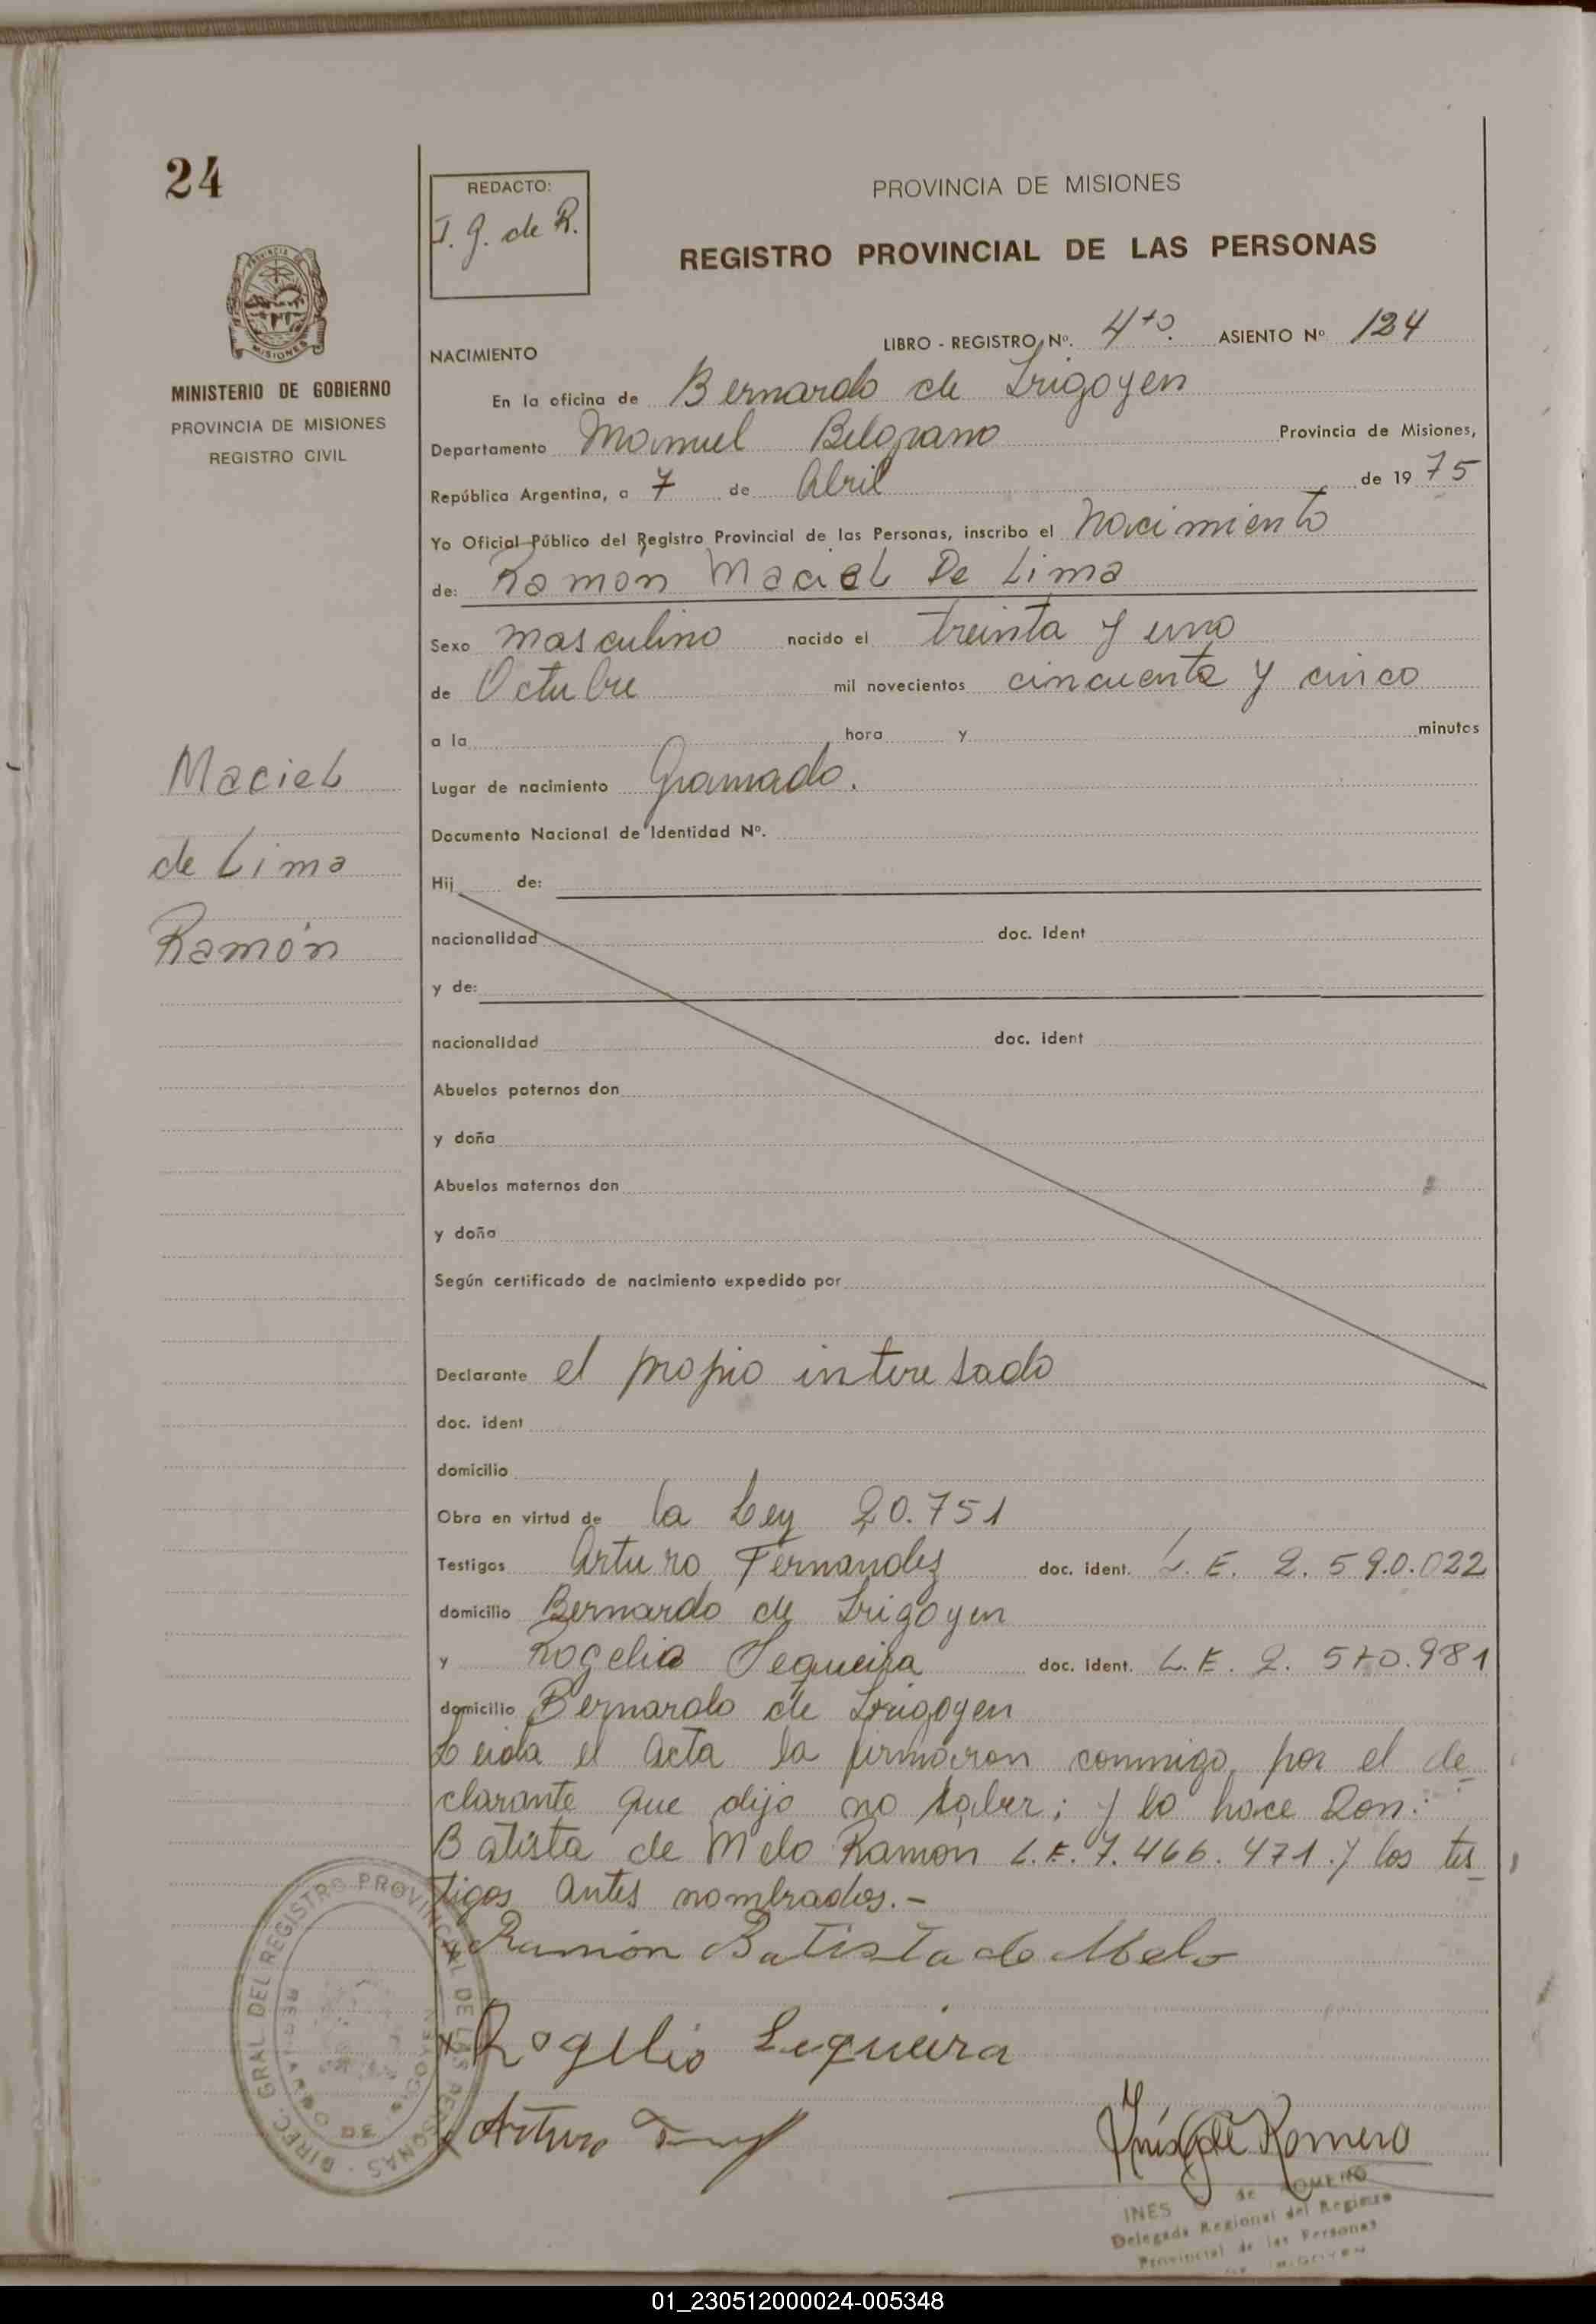 24
REDACTO:
I. G. de R.
PROVINCIA DE MISIONES
REGISTRO PROVINCIAL DE LAS PERSONAS
MINISTERIO DE GOBIERNO
PROVINCIA DE MISIONES
REGISTRO CIVIL
NACIMIENTO
LIBRO - REGISTRO Nº. 4to. ASIENTO Nº 124
En la oficina de Bernardo de Irigoyen
Departamento Manuel Belgrano Provincia de Misiones,
República Argentina, a 7 de Abril de 1975
Yo Oficial Público del Registro Provincial de las Personas, inscribo el Nacimiento
de: Ramón Maciel De Lima
Sexo masculino nacido el treinta y uno
de Octubre mil novecientos cincuenta y cinco
a la hora y minutos
Maciel
de Lima
Ramón
Lugar de nacimiento Gramado.
Documento Nacional de Identidad Nº.
Hij de:
nacionalidad doc. ident
y de:
nacionalidad doc. ident
Abuelos paternos don
y doña
Abuelos maternos don
y doña
Según certificado de nacimiento expedido por
Declarante el propio interesado
doc. ident
domicilio
Obra en virtud de la Ley 20.751
Testigos Arturo Fernandez doc. ident. L.E. 2.590.022
domicilio Bernardo de Irigoyen
y Rogelio Sequeira doc. ident. L.E. 2. .981
domicilio Bernardo de Irigoyen
Leida el Acta la firmaron conmigo, por el de
clarante que dijo no saber; y lo hace Don:
Batista de Melo Ramon L.E. 7.466.471. y los tes
tigos antes nombrados.-
Ramón Batista de Melo
Rogelio Sequeira
Arturo
Inés G de Romero
INES de ROMERO
Delegada Regional del Registro
Provincial de las Personas
DIREC. GRAL DEL REGISTRO PROVINCIAL DE LAS PERSONAS
01_230512000024-005348